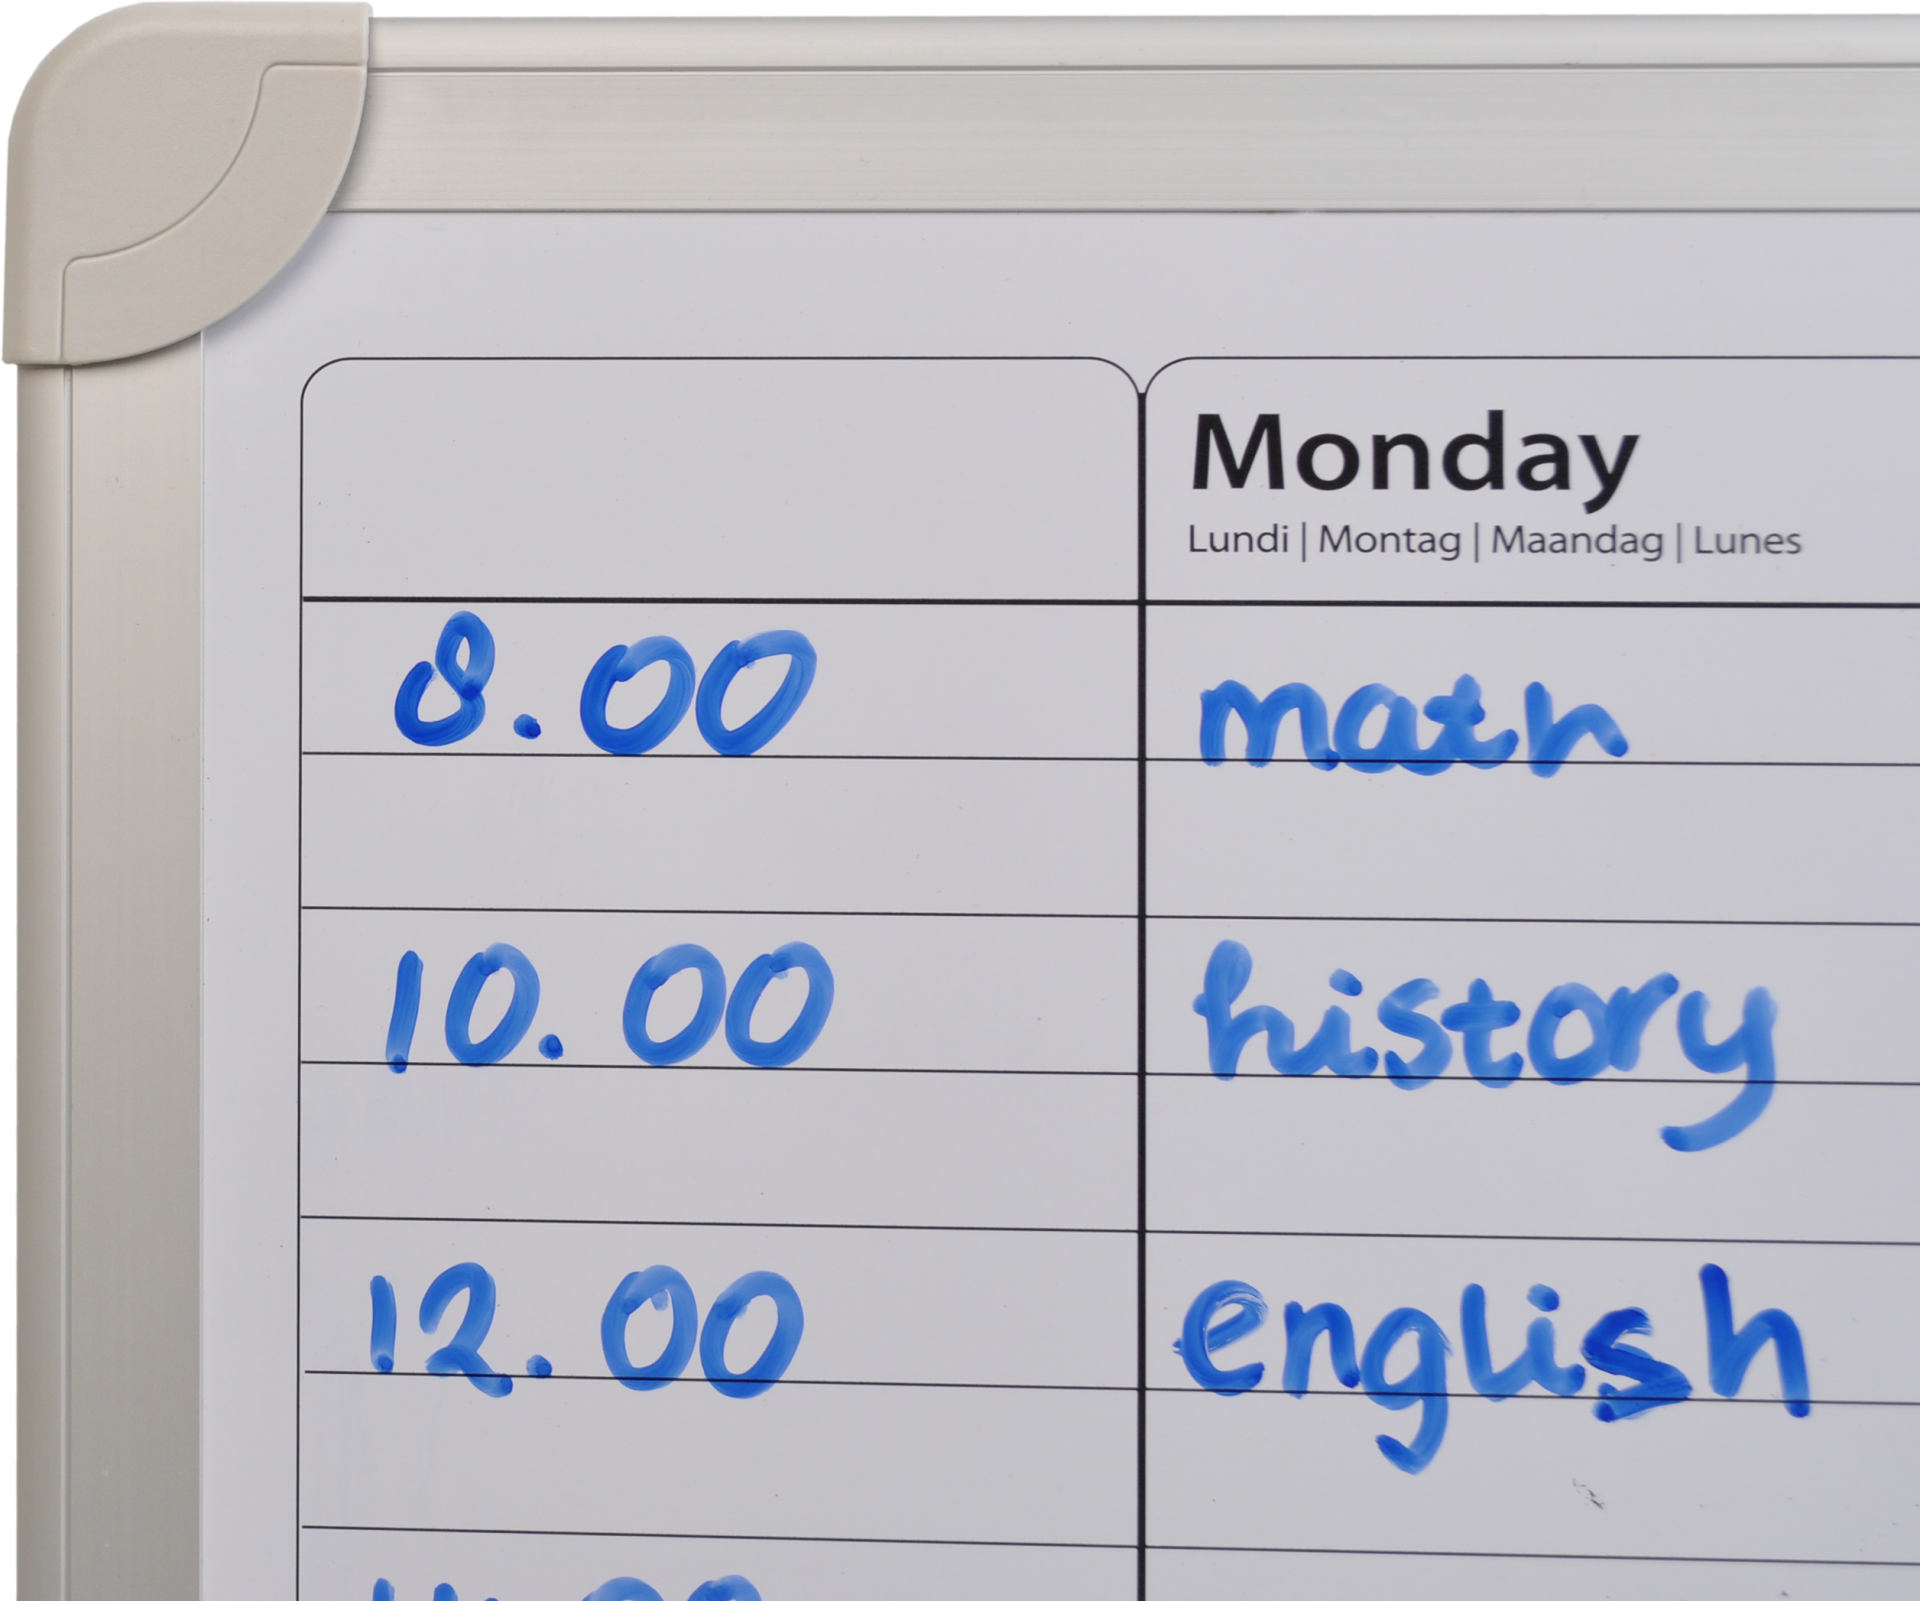 Monday
Lundi | Montag | Maandag | Lunes
8.00 math
10.00 history
12.00 english